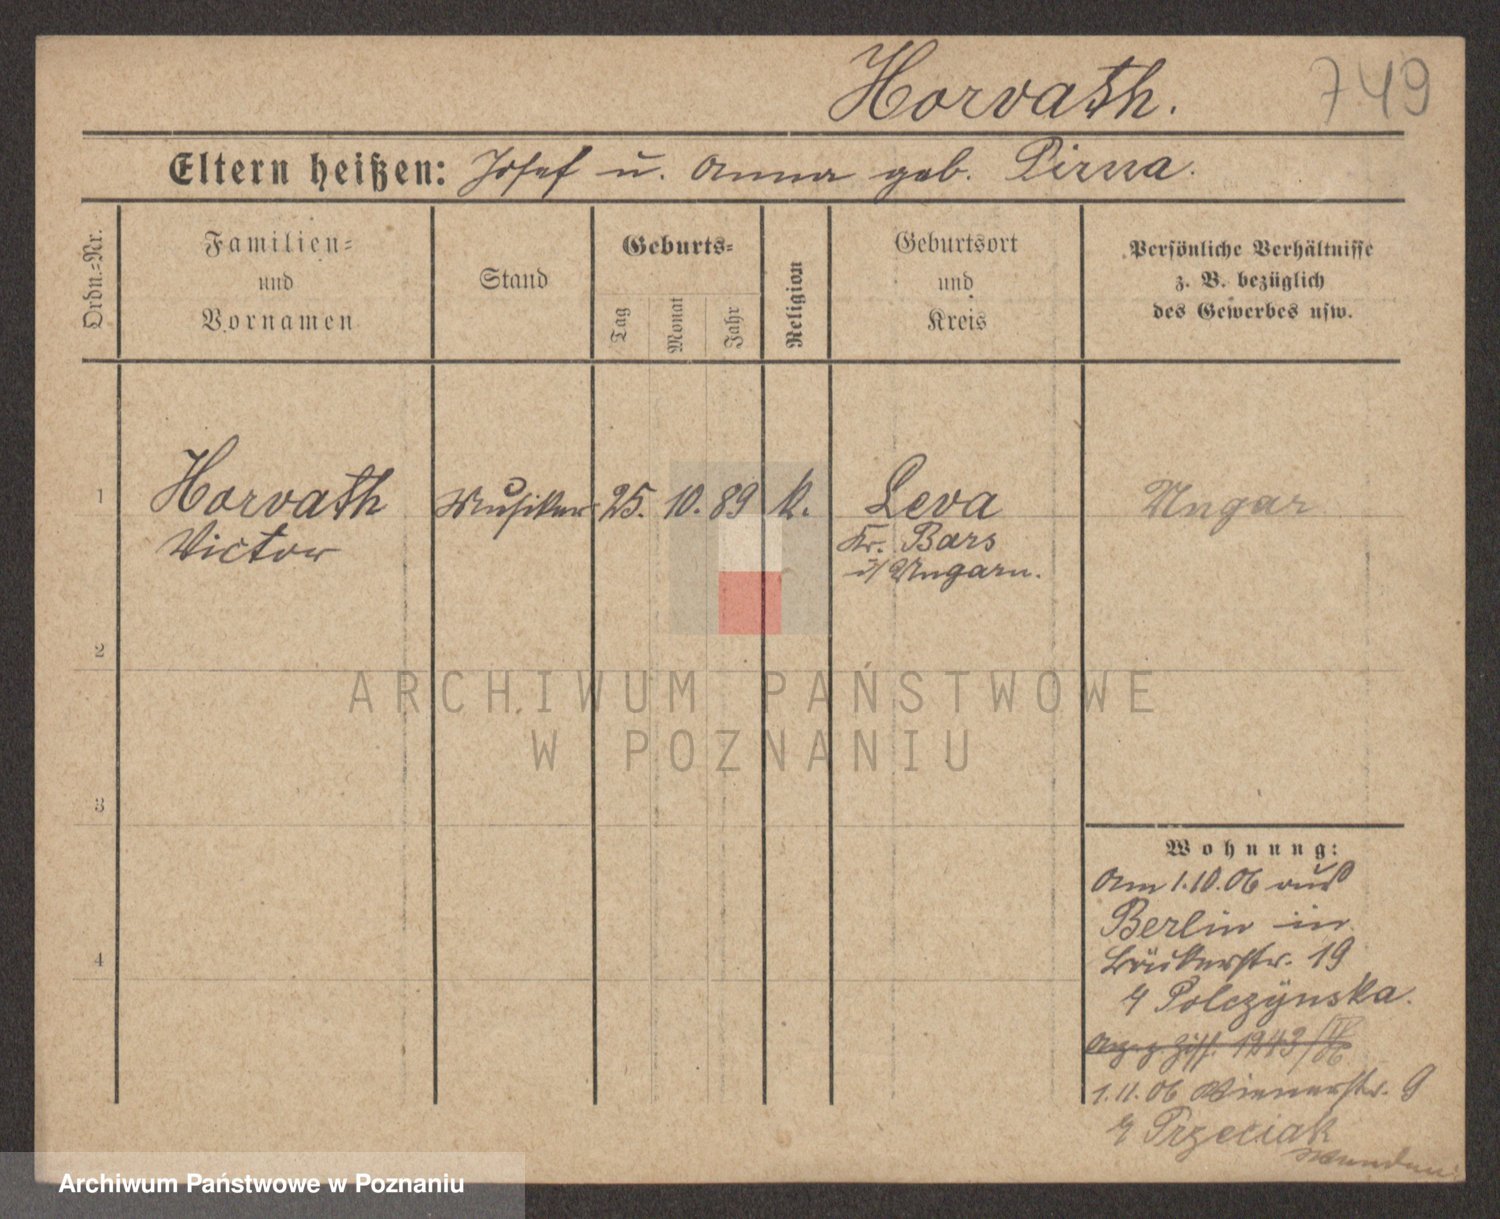 Horvath.
749
Eltern heißen: Josef u. Anna geb. Pirna.
Ordn.-Nr.
Familien-
und
Vornamen
Stand
Geburts-
Tag
Monat
Jahr
Religion
Geburtsort
und
Kreis
Persönliche Verhältnisse
z. B. bezüglich
des Gewerbes usw.
1
Horvath
Victor
Musiker
25. 10. 89
k.
Leva
Kr. Bars
i/ Ungarn.
Ungar
2
3
4
ARCHIWUM PAŃSTWOWE
W POZNANIU
Wohnung:
Am 1.10.06 aus
Berlin in
Bäckerstr. 19
Polczynska.
1243
1.11.06 Wienerstr. 9
Przeciak
Wenden
Archiwum Państwowe w Poznaniu